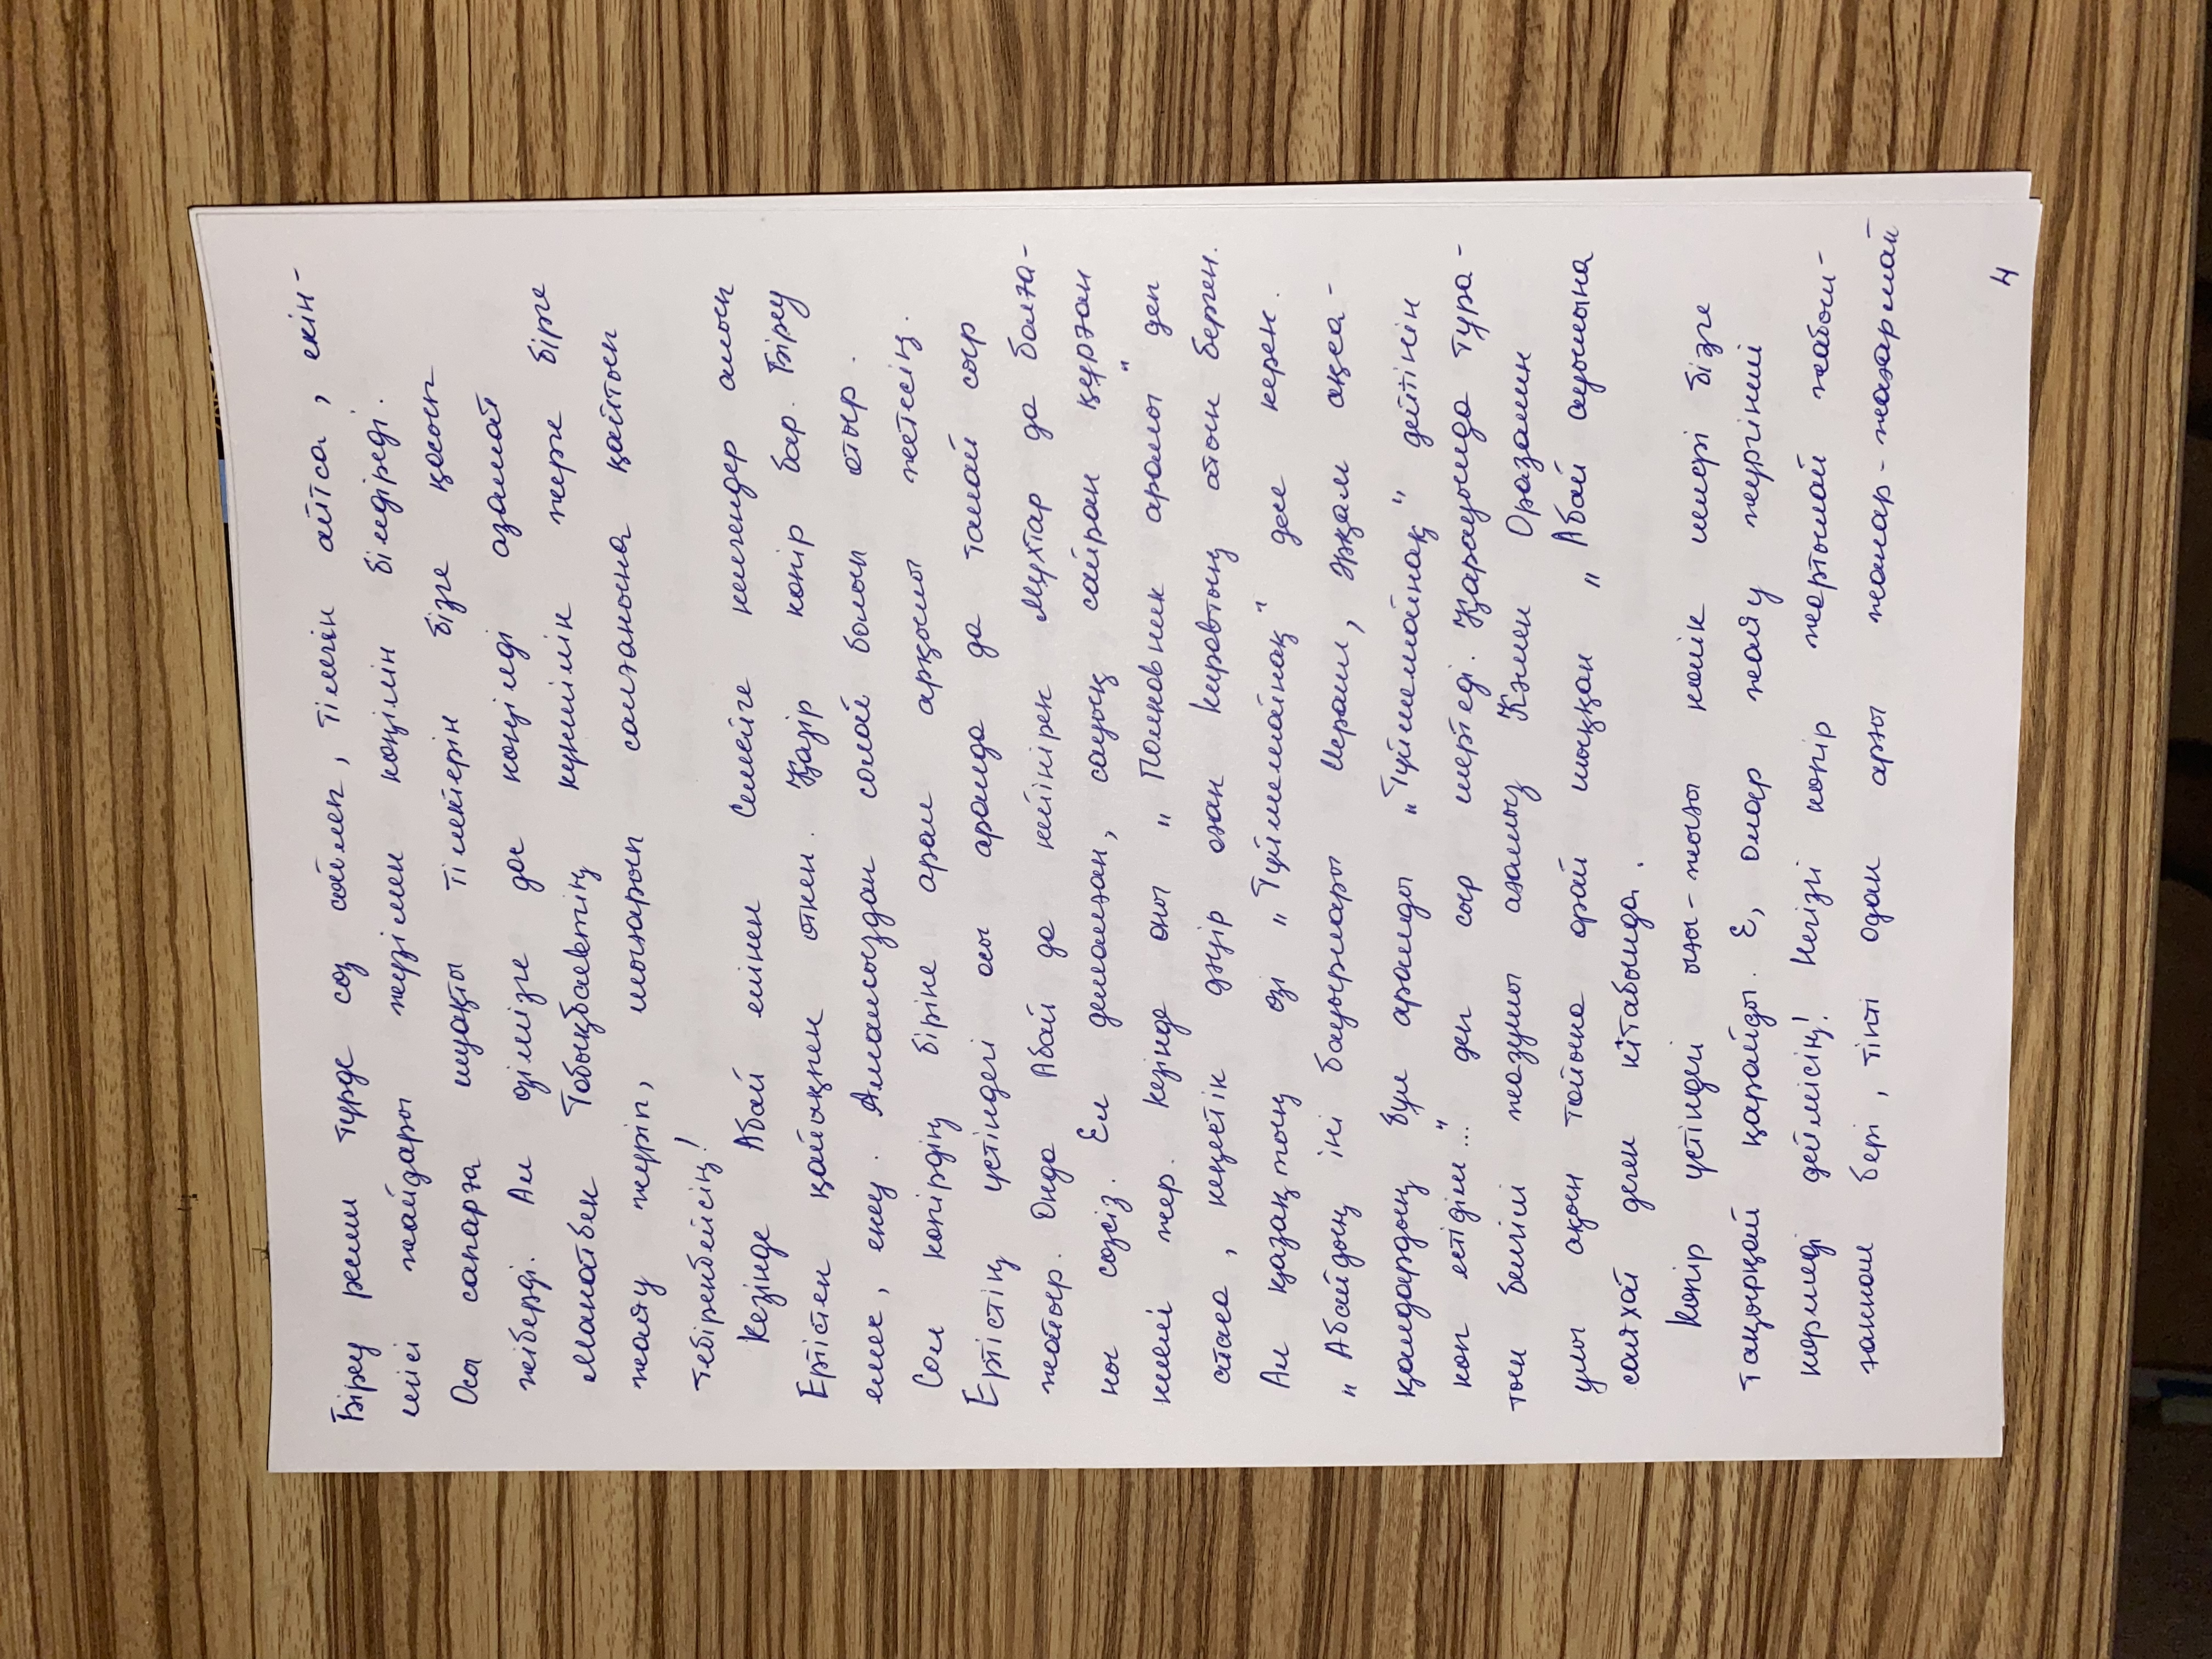 Біреу ресми түрде сөз сөйлеп, тілегін айтса, екін-
шісі жайдары жүзімен көңілін білдіреді.
Осы сапарға шуақты тілектерін бізге қосып
жіберді. Ал өзімізге дос көңілді азамат
Манатбек Тобықбаевтың күншілік жерге бірге
жаяу жүріп, шығарып салғанына қайтып
тебіренбейсің!
Кезінде Абай елінен Семейге келгендер алып
Ертістен қайықпен өткен. Қазір көпір бар. Біреу
емес, екеу. Амалсыздан солай болып отыр.
Сол көпірдің біріне арал арқылы жетесің.
Ертістің үстіндегі осы аралда да талай сыр
жатыр. Онда Абай да кейінірек Мұхтар да болға-
ны сөзсіз. Ел демалған, сауық сайран құрған
киелі жер. Кезінде оны „Полковник аралы" деп
атаса, кеңестік дәуір оған Кировтың атын берген.
Ал қазақтың өзі „Түйемойнақ" десе керек.
„Абайдың іні бауырлары Исраил, Әрхам ақса-
қалдардың бұл аралды „Түйемойнақ" дейтінін
көп естідім..." деп сыр шертеді. Қарауылда тұра-
тын белгілі жазушы ағамыз Кәмен Оразалин
ұлы ақын тойына орай шыққан „Абай ауылына
саяхат деген кітабында.
Көпір үстіндегі ығы-жығы көлік иелері бізге
таңырқай қарайды. Е, олар жаяу жүргінші
көрмеді деймісің! Негізгі көпір жартылай жабыл-
ғаннан бері, тіпті одан арғы жанар-жағармай
4